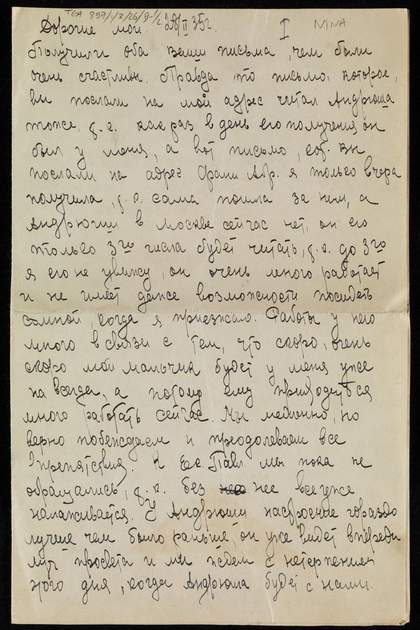 TGA 897/1/3/26/9-12 NINA
Дорогие мои 28/II 35г. I
Получили оба ваши письма, чем были
очень счастливы. Правда то письмо, которое,
вы послали на мой адрес читал Андрюша
тоже, т.к. как раз в день его получения он
был у меня, а вот письмо, кот. вы
послали на адрес Фани Абр. я только вчера
получила, т.к. сама пошла за ним, а
Андрюши в Москве сейчас нет, он его
только 3го числа будет читать, т.к. до 3го
я его не увижу, он очень много работает
и не имеет даже возможности посидеть
со мной, когда я приезжаю. Работы у него
много в связи с тем, что скоро, очень
скоро мой мальчик будет у меня уже
навсегда, а потому ему приходится
много работать сейчас. Мы медленно, но
верно побеждаем и преодолеваем все
препятствия. К Ек. Павл. мы пока не
обращались, т.к. без нее все уже
налаживается. У Андрюши настроение гораздо
лучше чем было раньше, он уже видит впереди
луч просвета и мы ждем с нетерпением
того дня, когда Андрюша будет с нами.